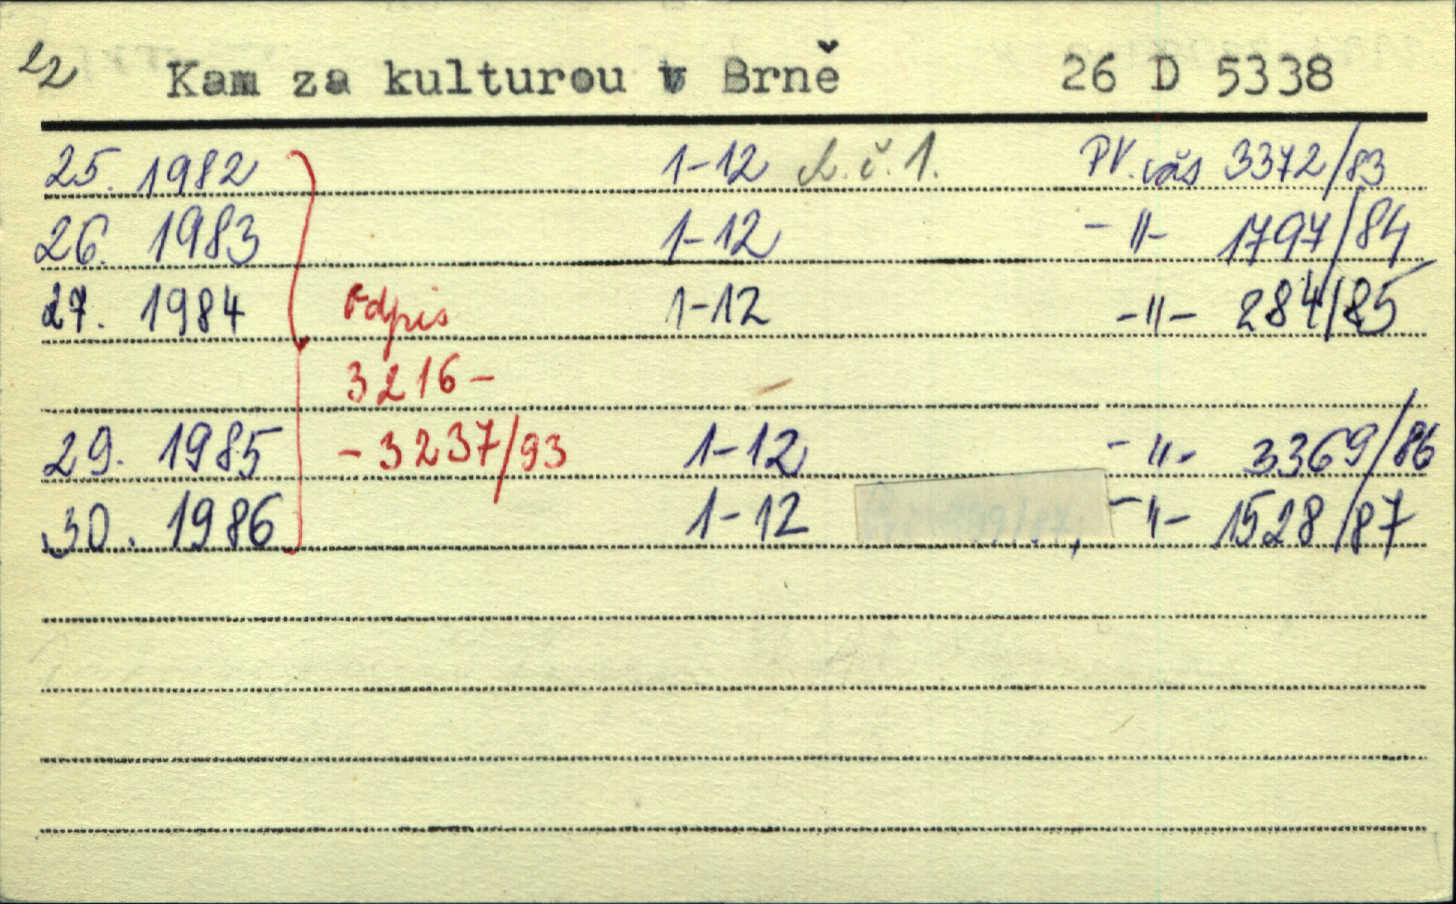 22 Kam za kulturou v Brně 26 D 5338
25. 1982 1-12 č. 1. PV. váz 3372/83
26. 1983 1-12 -"- 1797/84
27. 1984 Odpis 1-12 -"- 284/85
3216-
29. 1985 -3237/93 1-12 -"- 3369/86
30. 1986 1-12 -"- 1528/87